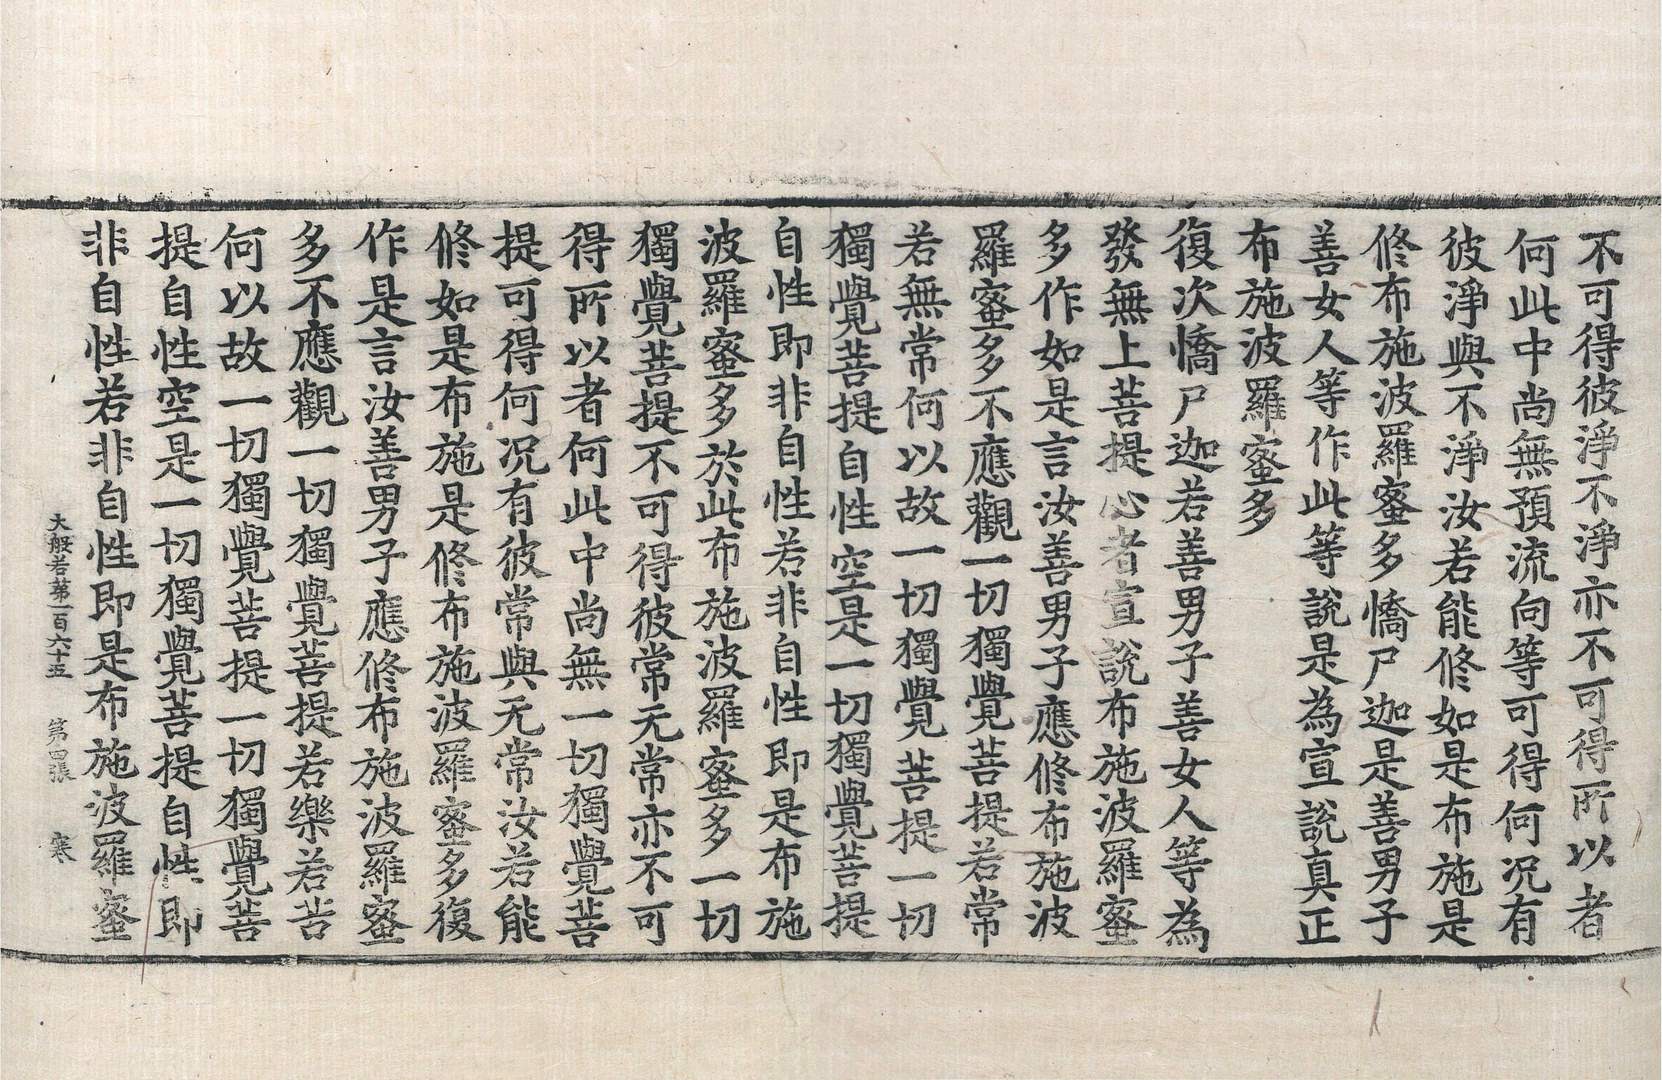 不可得彼淨不淨亦不可得所以者
何此中尚無預流向等可得何况有
彼淨與不淨汝若能修如是布施是
修布施波羅蜜多憍尸迦是善男子
善女人等作此等說是為宣說真正
布施波羅蜜多
復次憍尸迦若善男子善女人等為
發無上菩提心者宣說布施波羅蜜
多作如是言汝善男子應修布施波
羅蜜多不應觀一切獨覺菩提若常
若無常何以故一切獨覺菩提一切
獨覺菩提自性空是一切獨覺菩提
自性即非自性若非自性即是布施
波羅蜜多於此布施波羅蜜多一切
獨覺菩提不可得彼常无常亦不可
得所以者何此中尚無一切獨覺菩
提可得何况有彼常與无常汝若能
修如是布施是修布施波羅蜜多復
作是言汝善男子應修布施波羅蜜
多不應觀一切獨覺菩提若樂若苦
何以故一切獨覺菩提一切獨覺菩
提自性空是一切獨覺菩提自性即
非自性若非自性即是布施波羅蜜
大般若第一百六十五 第四張 寒